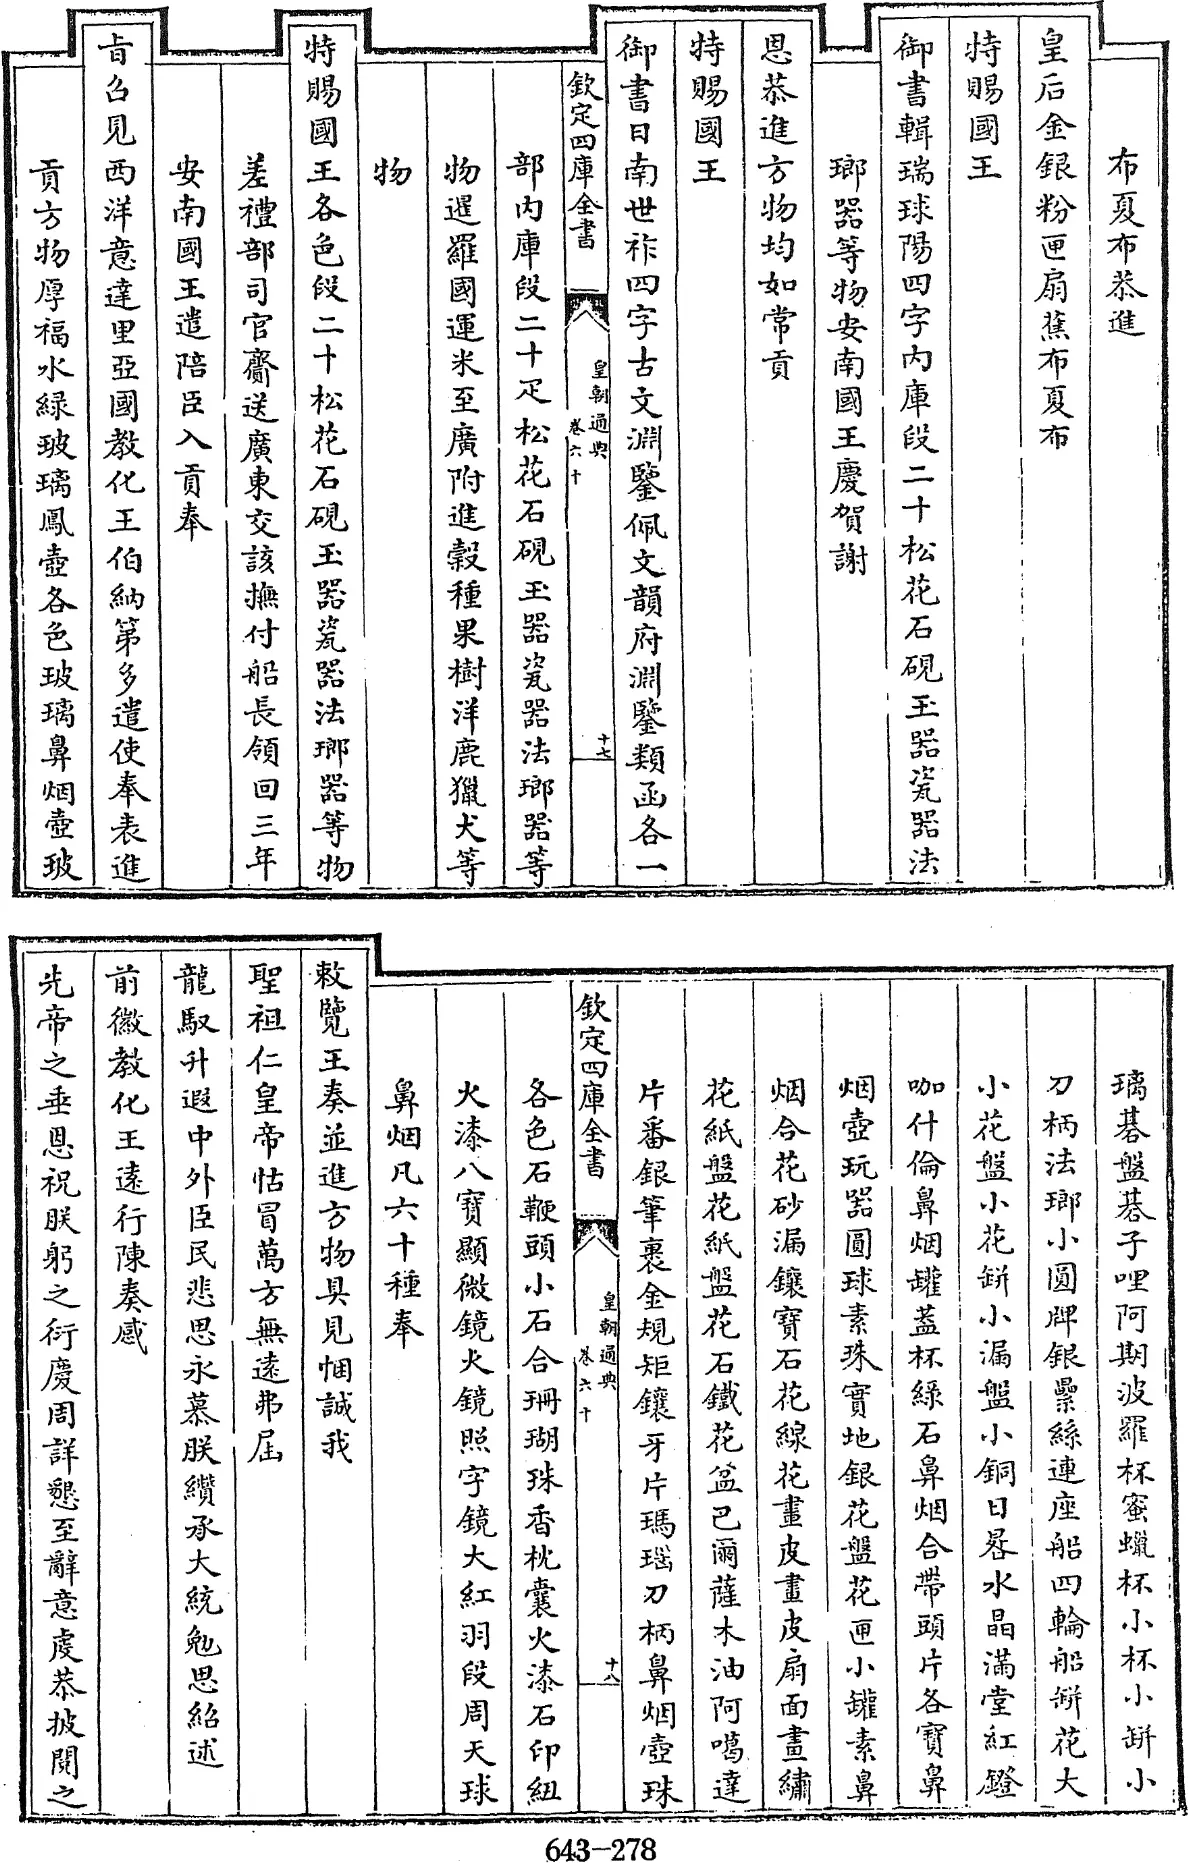 布夏布恭進
皇后金銀粉匣扇蕉布夏布
特賜國王
御書輯瑞球陽四字内庫段二十松花石硯玉器瓷器法
瑯器等物安南國王慶賀謝
恩恭進方物均如常貢
特賜國王
御書日南世祚四字古文淵鑒佩文韻府淵鑒類函各一
欽定四庫全書
皇朝通典
卷六十
十七
部内庫段二十疋松花石硯玉器瓷器法瑯器等
物暹羅國運米至廣附進穀種果樹洋鹿獵犬等
物
特賜國王各色段二十松花石硯玉器瓷器法瑯器等物
差禮部司官齎送廣東交該撫付船長領回三年
安南國王遣陪臣入貢奉
旨召見西洋意達里亞國教化王伯納第多遣使奉表進
貢方物厚福水緑玻璃鳳壺各色玻璃鼻烟壺玻
璃碁盤碁子哩阿期波羅杯蜜蠟杯小杯小缾小
刀柄法瑯小圓牌銀纍絲連座船四輪船缾花大
小花盤小花缾小漏盤小銅日晷水晶滿堂紅鐙
咖什倫鼻烟罐蓋杯緑石鼻烟合帶頭片各寶鼻
烟壺玩器圓球素珠實地銀花盤花匣小罐素鼻
烟合花砂漏鑲寶石花線花畫皮畫皮扇面畫繡
花紙盤花紙盤花石鐵花盆巴爾薩木油阿噶達
片番銀筆裹金規矩鑲牙片瑪瑙刀柄鼻烟壺珠
欽定四庫全書
皇朝通典
卷六十
十八
各色石鞭頭小石合珊瑚珠香枕囊火漆石印紐
火漆八寶顯微鏡火鏡照字鏡大紅羽段周天球
鼻烟凡六十種奉
敕覽王奏並進方物具見悃誠我
聖祖仁皇帝怙冒萬方無遠弗屆
龍馭升遐中外臣民悲思永慕朕纘承大統勉思紹述
前徽教化王遠行陳奏感
先帝之垂恩祝朕躬之衍慶周詳懇至辭意虔恭披閱之
643-278